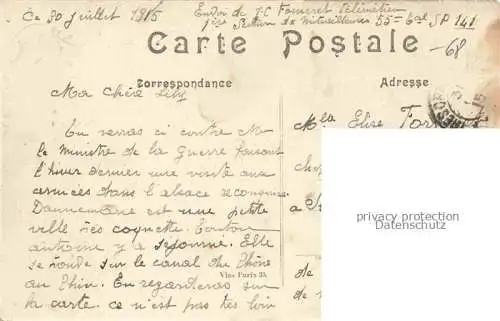 Ce 30 juillet 1915
Envoi de J-C Fomeret Télémétreur
1ère Section de Mitrailleuses 55e SP 141
-68
Carte Postale
Correspondance
Adresse
Ma Chère Lily
Tu verras ci contre M
le Ministre de la Guerre faisant
l'hiver dernier une visite aux
armées dans l'alsace reconquise
Dannemarie est une petite
ville très coquette. Tonton
antoine y a séjourné. Elle
se trouve sur le canal du Rhône
au Rhin. En regardant sur
la carte ce n'est pas très loin
Vise Paris 35.
Mlle Elise
a
de
de
privacy protection
Datenschutz